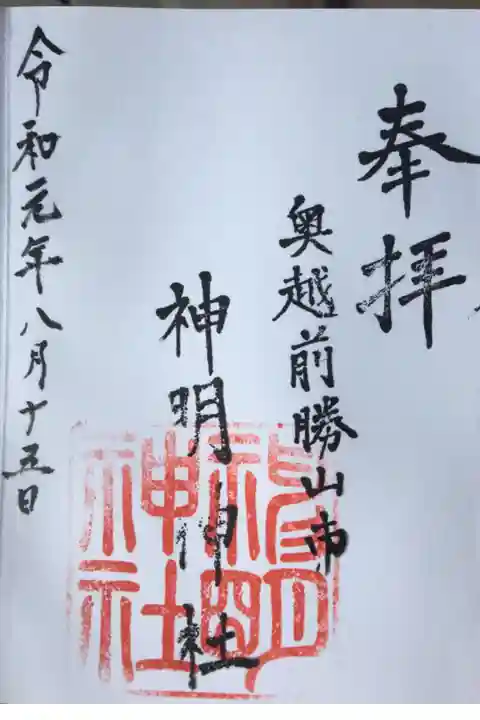 奉拝
奥越前勝山市
神明神社
令和元年八月十五日